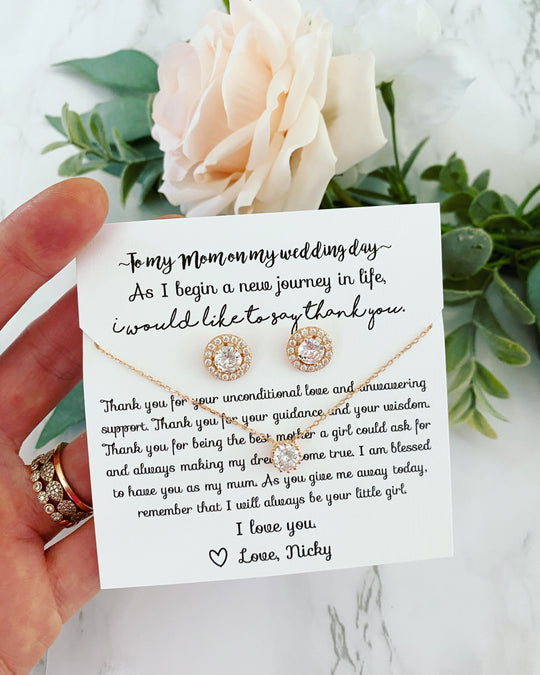 ~To my Mom on my wedding day~
As I begin a new journey in life,
i would like to say thank you.
Thank you for your unconditional love and unwavering
support. Thank you for your guidance and your wisdom.
Thank you for being the best mother a girl could ask for
and always making my dre come true. I am blessed
to have you as my mum. As you give me away today,
remember that I will always be your little girl.
I love you.
♡ Love, Nicky